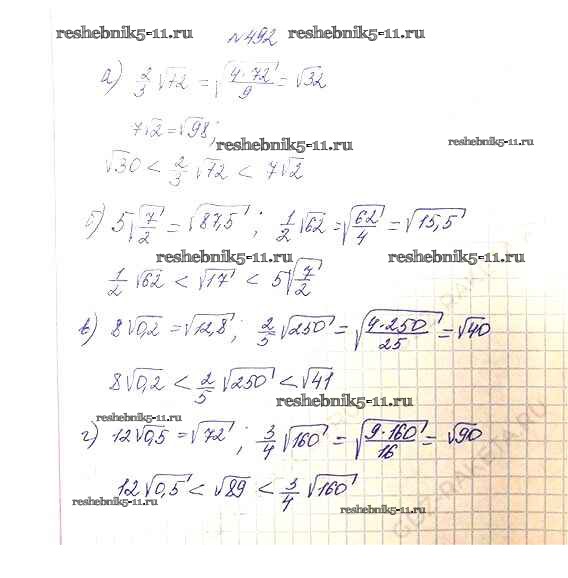 reshebnik5-11.ru №492 reshebnik5-11.ru
а) 2/3 √72 = √(4·72/9) = √32
7√2 = √98;
reshebnik5-11.ru reshebnik5-11.ru
√30 < 2/3 √72 < 7√2
б) 5√(7/2) = √87,5; 1/2 √62 = √(62/4) = √15,5
reshebnik5-11.ru reshebnik5-11.ru
1/2 √62 < √17 < 5√(7/2)
в) 8√0,2 = √12,8; 2/5 √250 = √(4·250/25) = √40
8√0,2 < 2/5 √250 < √41
reshebnik5-11.ru
reshebnik5-11.ru
г) 12√0,5 = √72; 3/4 √160 = √(9·160/16) = √90
12√0,5 < √89 < 3/4 √160
reshebnik5-11.ru reshebnik5-11.ru
GDZ-RAKETA.RU